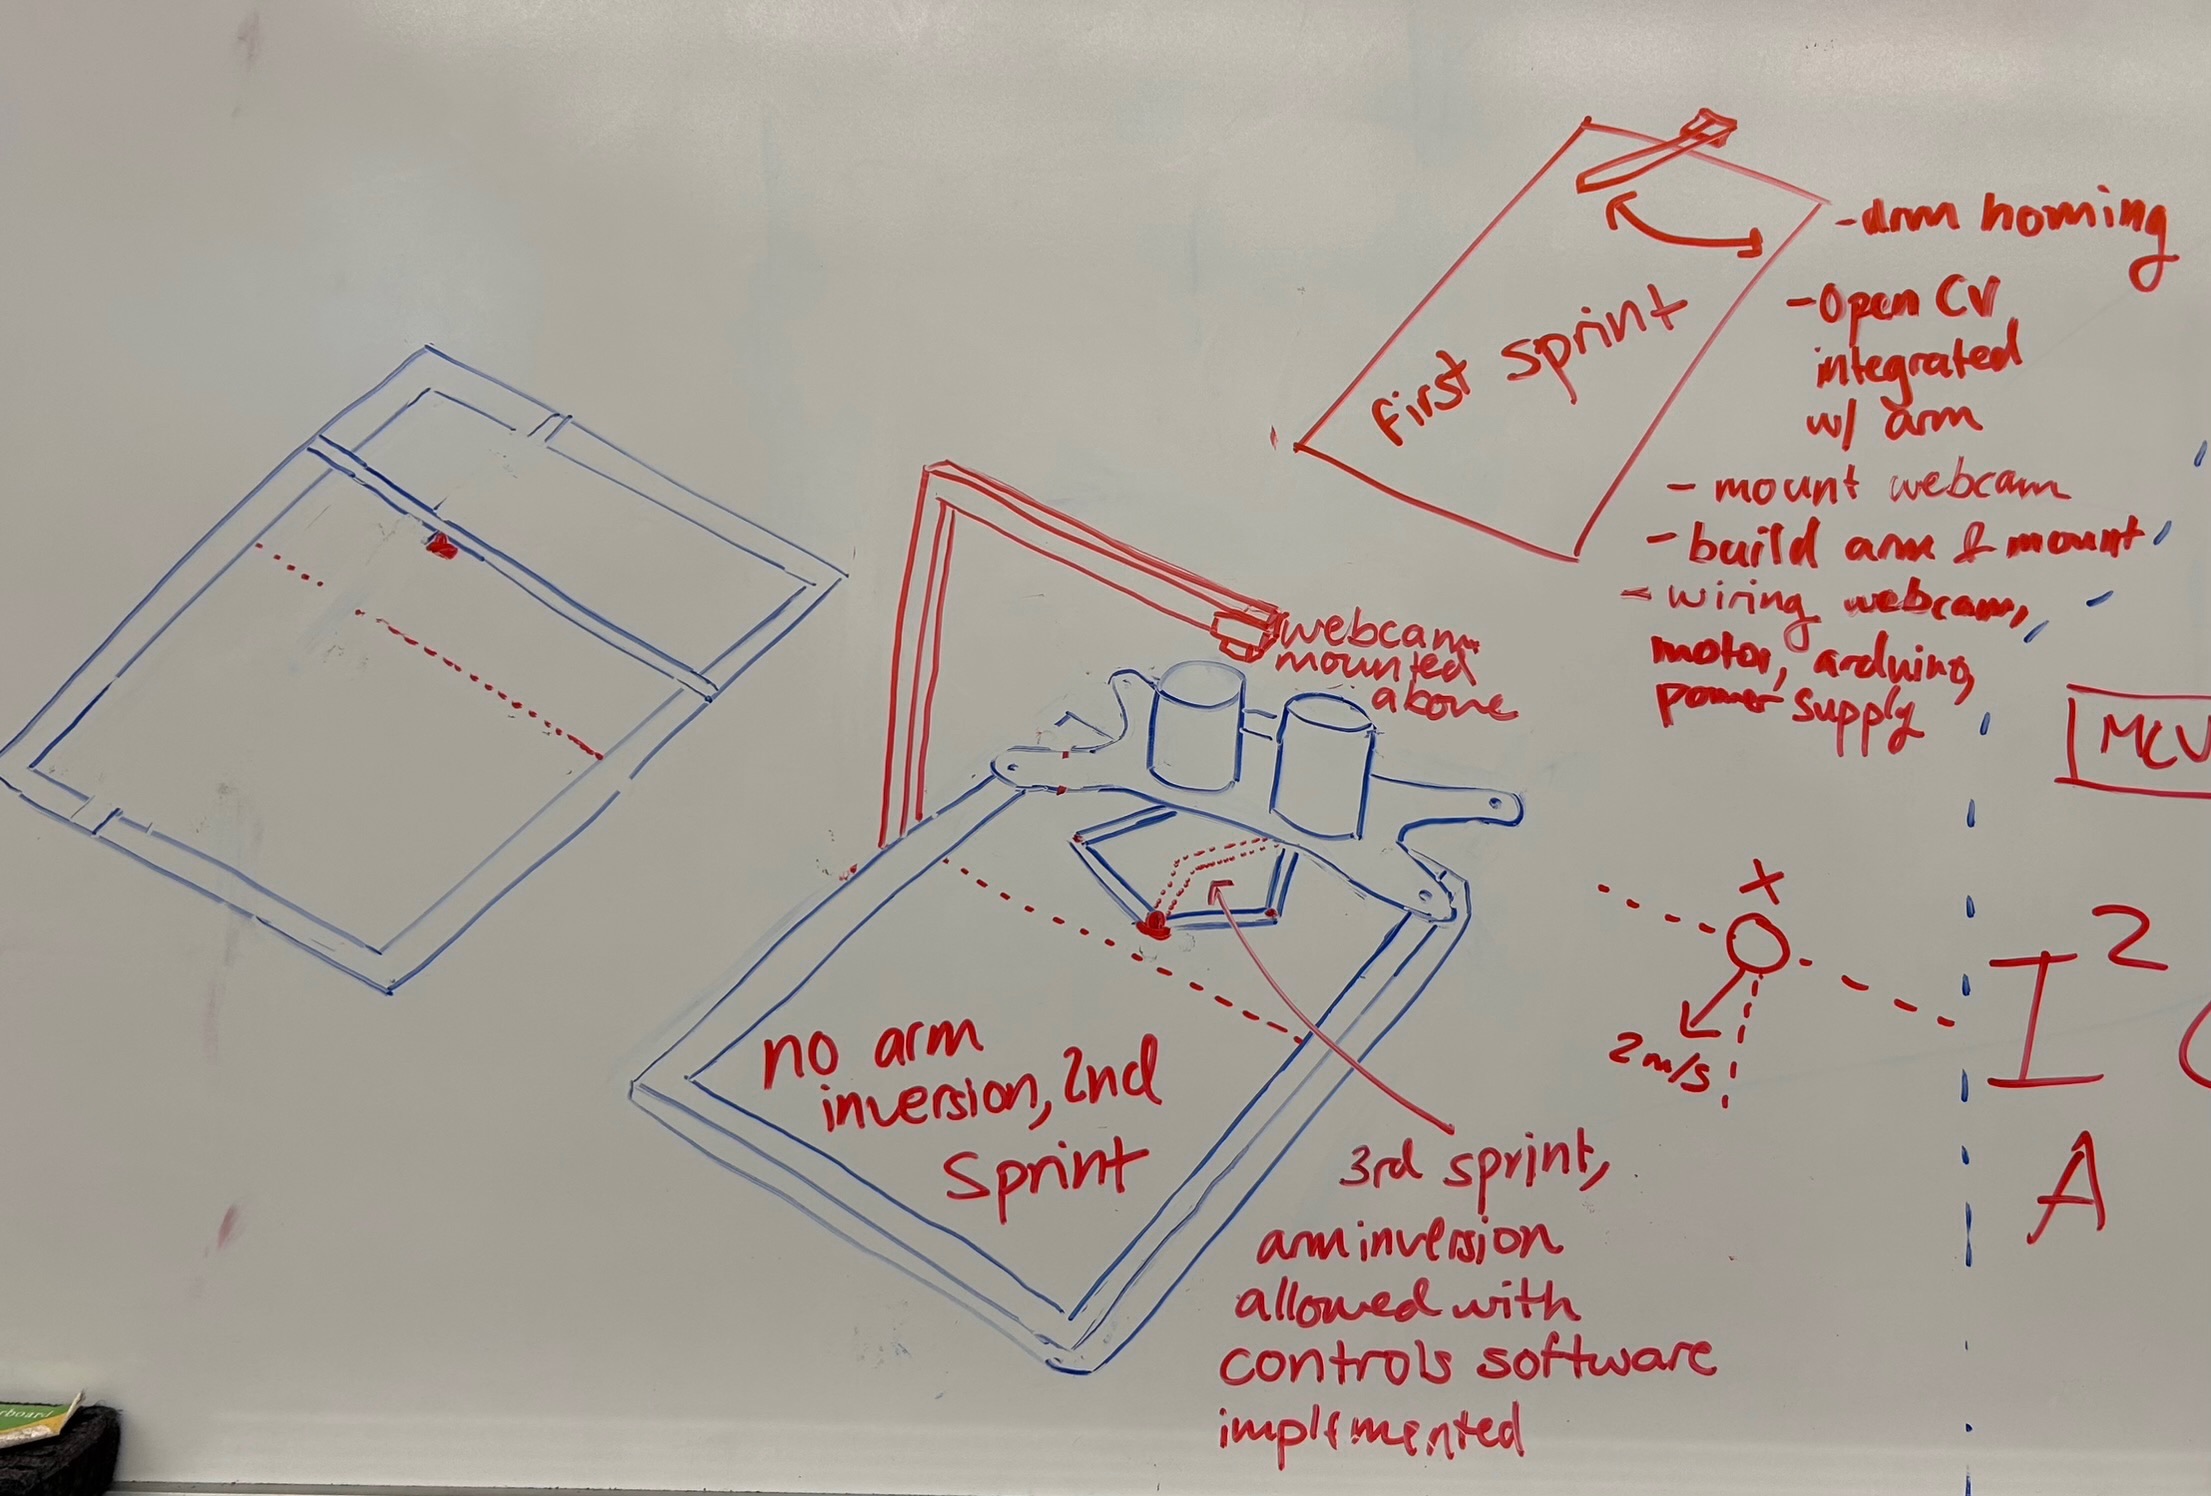 -arm homing
-Open CV
integrated
w/ arm
- mount webcam
- build arm & mount
- wiring webcam,
motor, arduino,
power supply
First Sprint
webcam
mounted
above
MCU
X
2 m/s
I²
A
no arm
inversion, 2nd
Sprint
3rd sprint,
arm inversion
allowed with
controls software
implemented
rboard